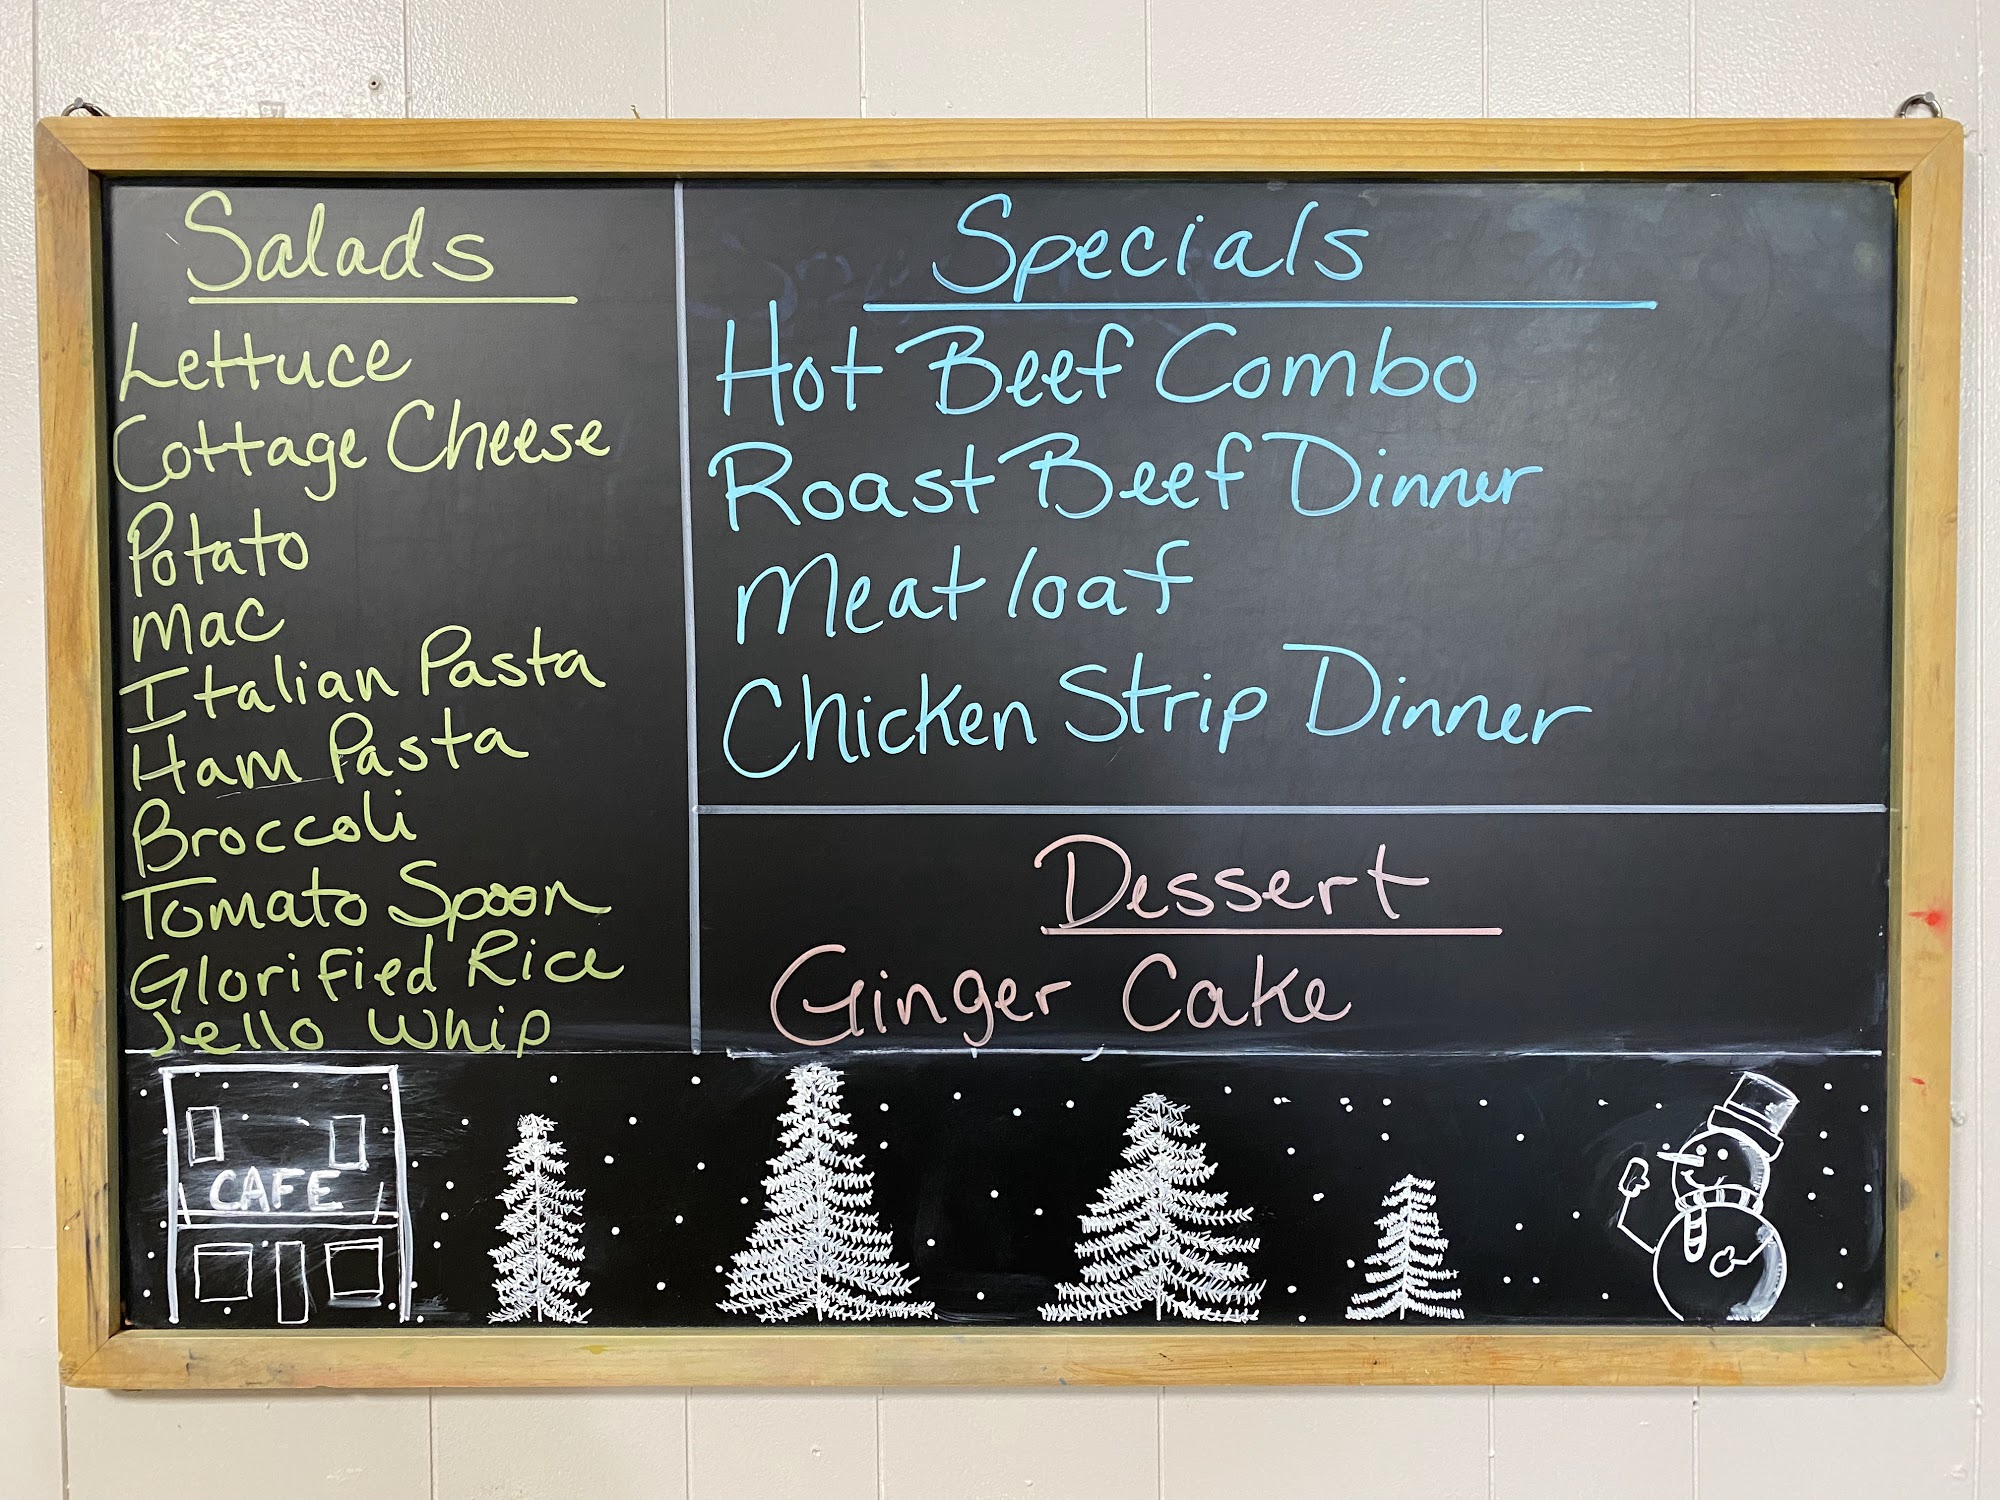 Salads
Lettuce
Cottage Cheese
Potato
Mac
Italian Pasta
Ham Pasta
Broccoli
Tomato Spoon
Glorified Rice
Jello Whip
Specials
Hot Beef Combo
Roast Beef Dinner
Meat loaf
Chicken Strip Dinner
Dessert
Ginger Cake
CAFE